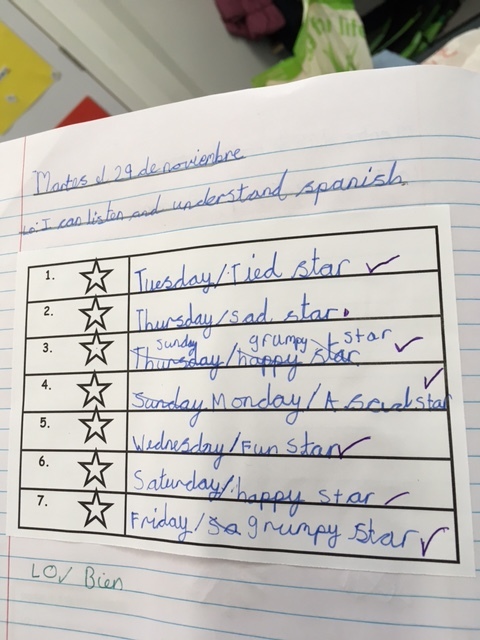 Martes el 29 de noviembre
Lo: I can listen and understand spanish.
1. Tuesday/Tied star ✓
2. Thursday/sad star.
sunday grumpy star ✓
3. Thursday/happy star
4. Sunday Monday/A star ✓
5. Wednesday/Fun star ✓
6. Saturday/happy star ✓
7. Friday/sa grumpy star ✓
LO✓ Bien